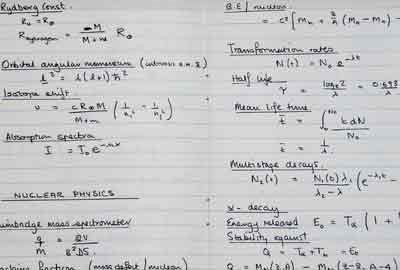 Rydberg Const.
R₀ = R∞
R_hydrogen = M / (M + m) R∞
Orbital angular momentum
l² = l(l+1)ħ²
Isotope shift.
ν = cR∞M / (M+m) (1/n₁² − 1/n₂²)
Absorption spectra
I = I₀e
NUCLEAR PHYSICS
mass spectrometer
q/m =
fraction (mass defect / nucleon)
B.E / nucleon
= c² [Mₙ + (Mₕ − Mₙ) −
Transformation rates
N(t) = N₀ e^−λt
Half life
τ = logₑ2 / λ = 0.693 / λ
Mean life time
t̄ = ∫₀^N₀ t dN / N₀
t̄ = 1/λ
Multistage decays.
N₂(t) = N₁(0) λ₁ / (λ₂ − λ₁) (e^−λ₁t −
α - decay
Energy released E₀ = Tα (1 +
Stability against
Q = Tα + T = E₀
Q = M (Z,A) − M (Z−2, A−4)